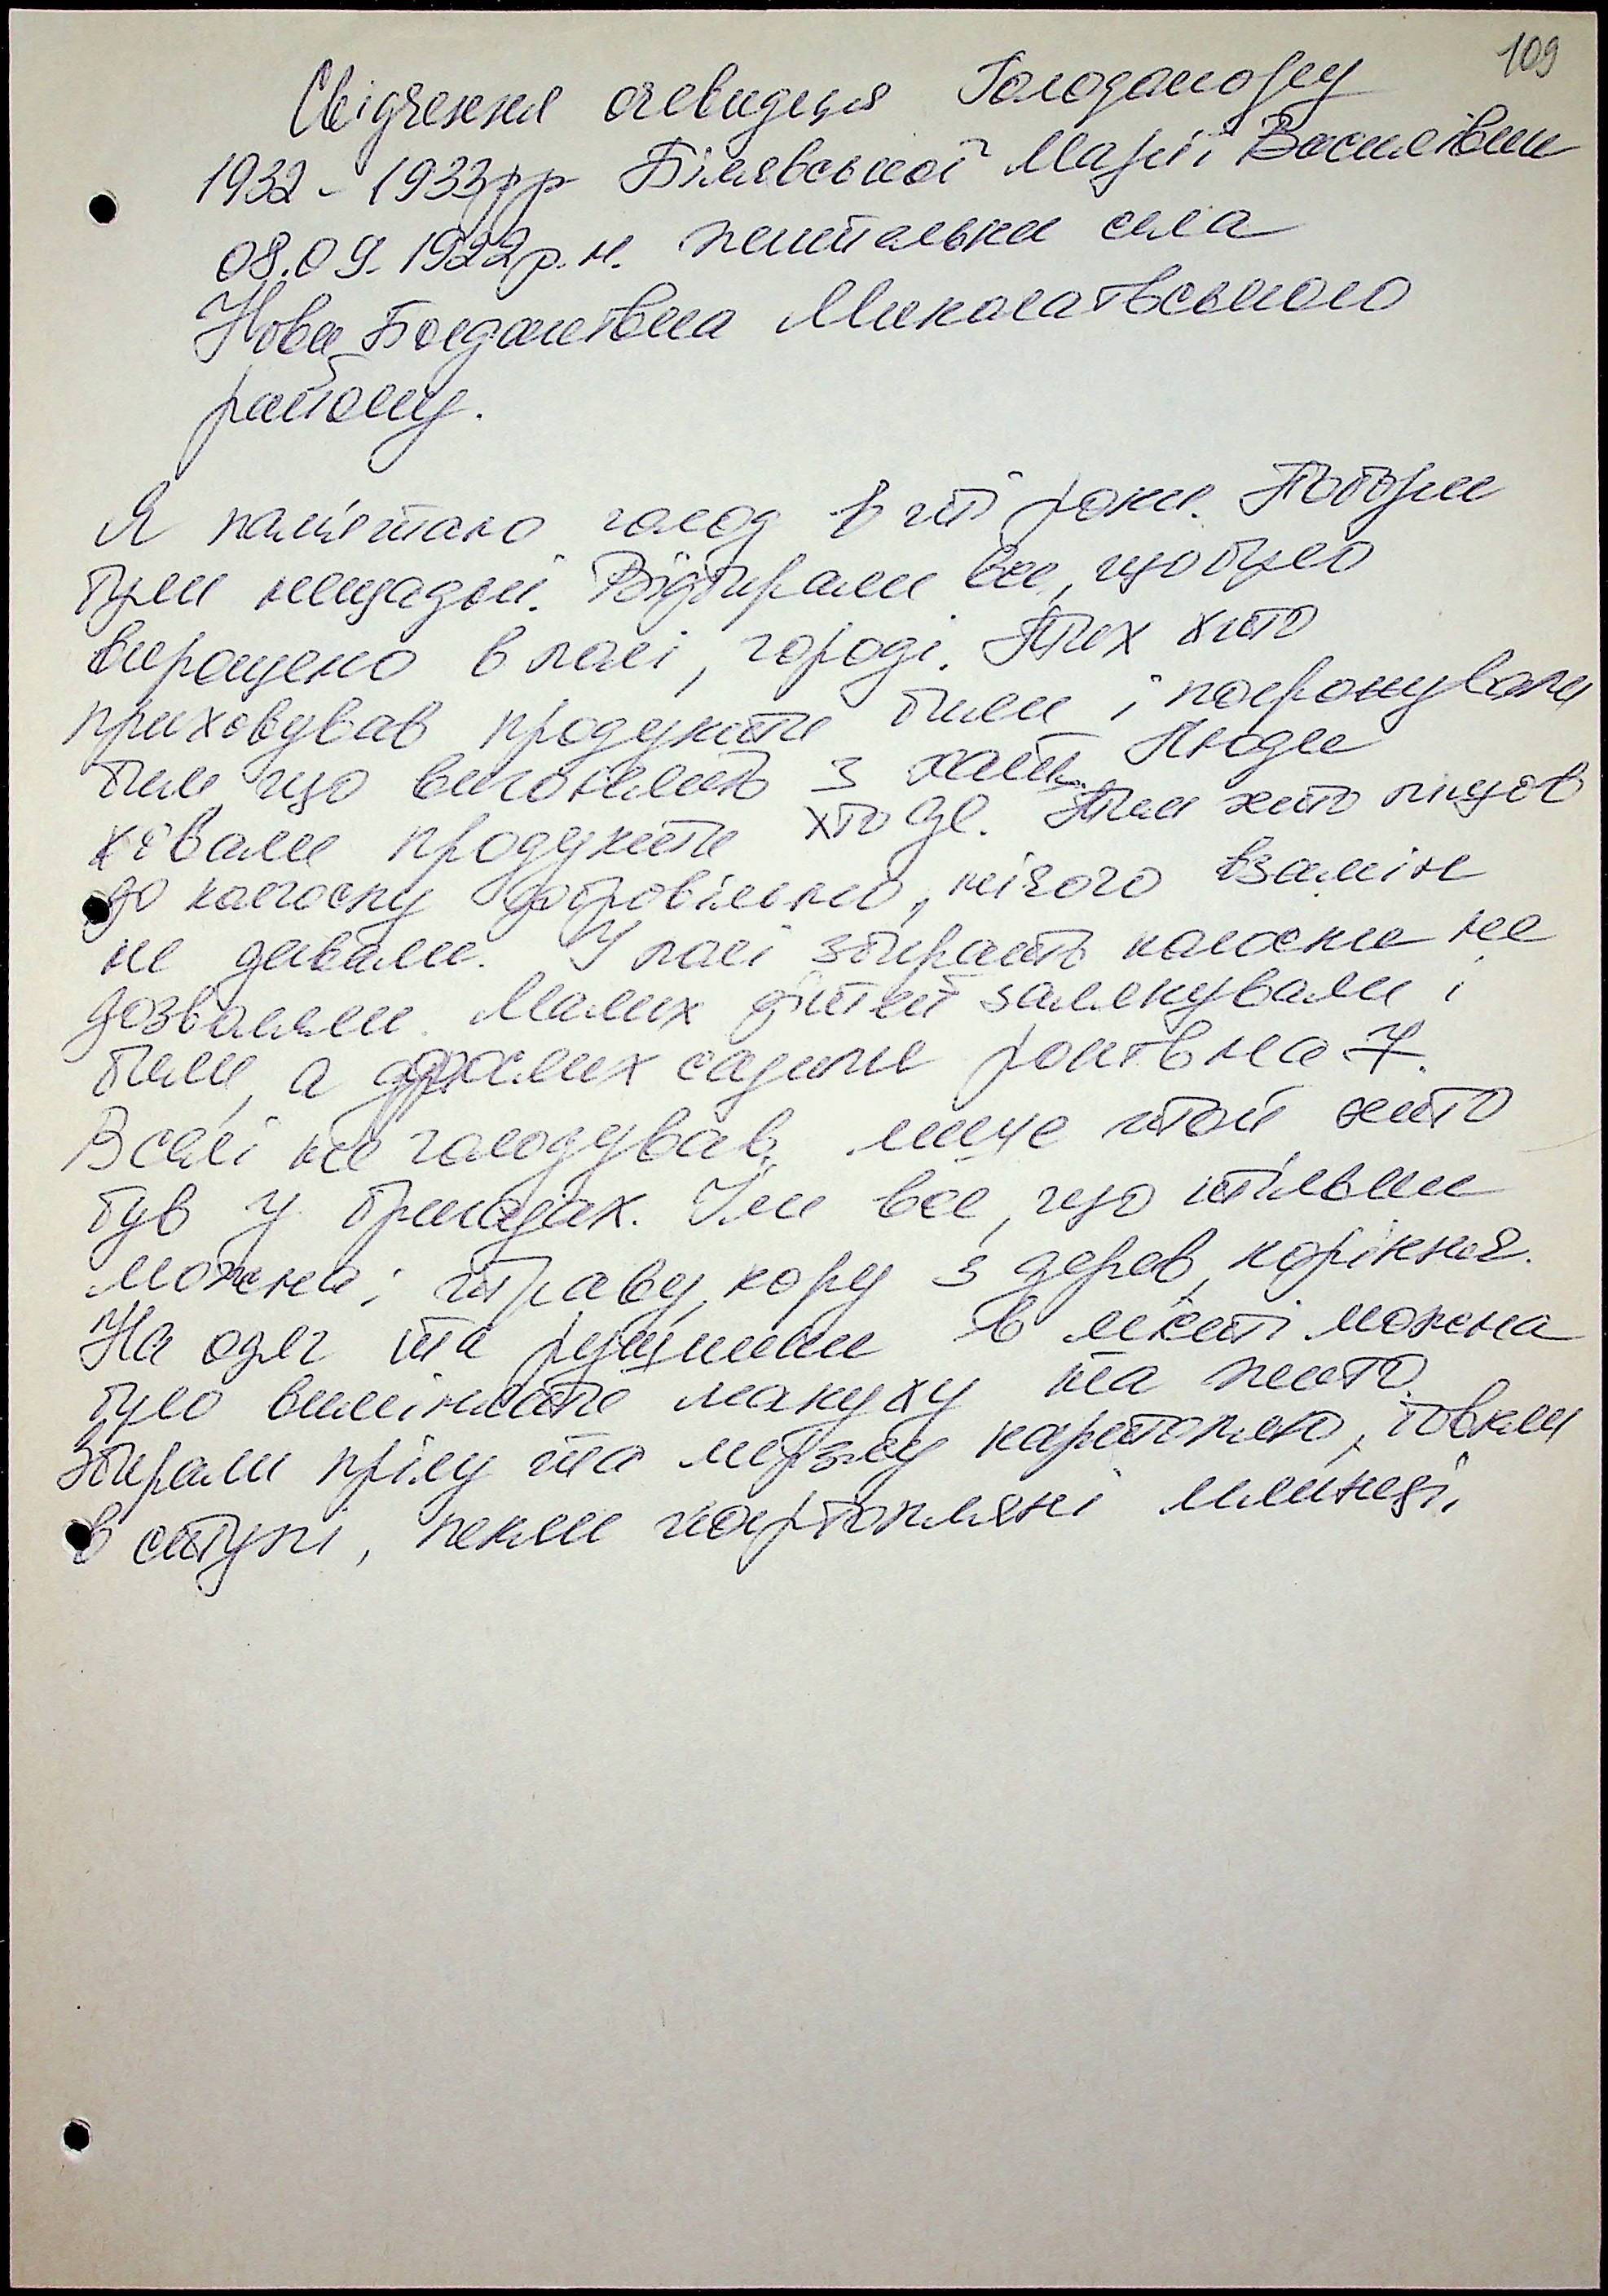 109
Свідчення очевидця Голодомору
1932-1933рр Білявської Марії Василівни
08.09.1922р.н. жительки села
Нова Богданівка Миколаївського
району.
Я пам'ятаю голод в ті роки. Побори
були нещадні. Відбирали все, що було
вирощено в полі, городі. Тих хто
приховував продукти били і погрожували
тим що виженуть з хати. Люди
ховали продукти хто де. Тим хто пішов
до колгоспу добровільно, нічого взамін
не давали. У полі збирать колоски не
дозволяли. Малих дітей залякували і
били, а дорослих садили років на 7.
В селі не голодував, лише той хто
був у бригадах. Їли все, що тільки
можна; траву, кору з дерев, коріння.
На одяг та рушники в місті можна
було виміняти макуху та жито.
Збирали прілу та мерзлу картоплю, товкли
в ступі, пекли картопляні млинці.